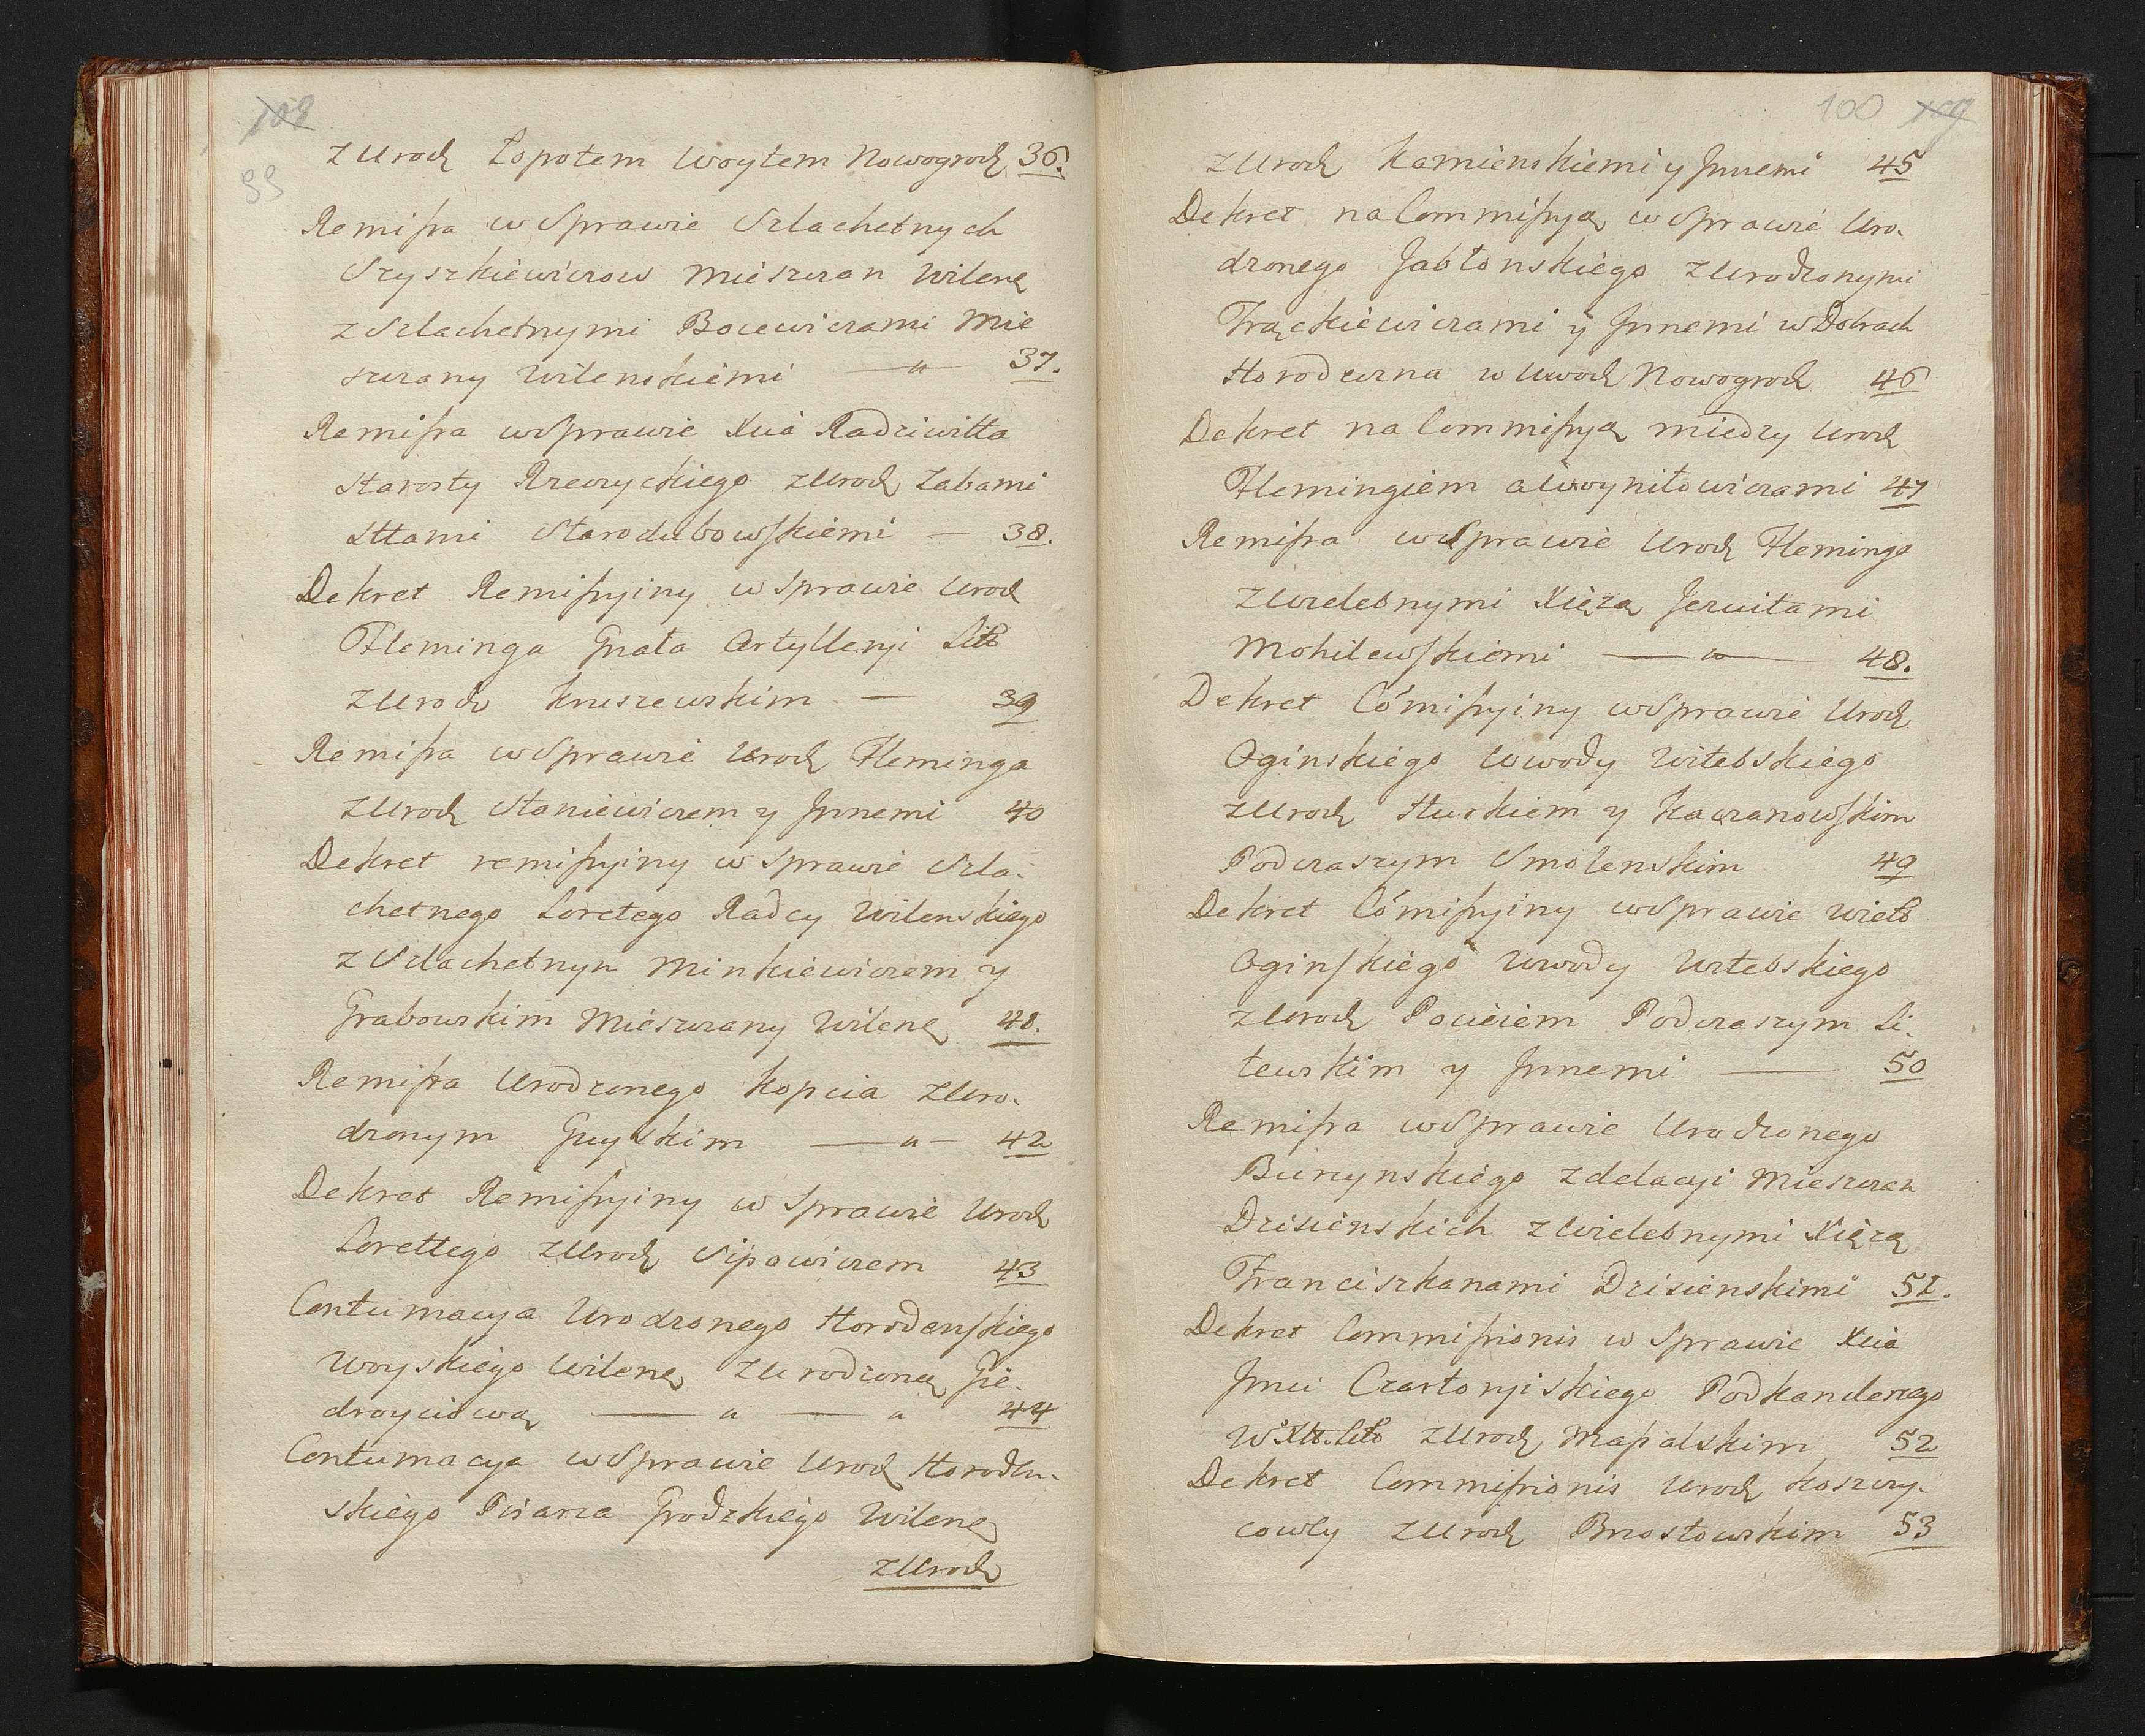 108
99
z Urodz Łopotem Woytem Nowogrodz 36.
Remissa w Sprawie Szlachetnych
Szyszkiewiczow Mieszczan Wileńę
z Szlachetnymi Bocewiczami Mie
szczany Wilenskiemi — „ — 37.
Remissa w Sprawie Xcia Radziwiłła
Starosty Rzeczyckiego z Urodz Zabami
Sttami Starodubowskiemi — 38.
Dekret Remissyiny w Sprawie Urodz
Fleminga Gnała Artylleryi Litt
z Urodz Kruszewskim — 39
Remissa w Sprawie Urodz Fleminga
z Urodz Staniewiczem y Jnnemi 40
Dekret remissyiny w Sprawie Szla-
chetnego Loretego Radcy Wilenskiego
z Szlachetnym Minkiewiczem y
Grabowskim Mieszczany Wilenę 41.
Remissa Urodzonego Kopcia z Uro-
dzonym Guyskim — „ — 42
Dekret Remissyiny w Sprawie Urodz
Lorettego z Urodz Sipowiczem 43
Contumacya Urodzonego Horodenskiego
Woyskiego Wilenę z Urodzoną Gie-
droyciową — „ — „ 44
Contumacya w Sprawie Urodz Horodeń-
skiego Pisarza Grodzkiego Wilenę
z Urodz
100 109
z Urodz Kamienskiemi y Jnnemi 45
Dekret na Commissyą w Sprawie Uro-
dzonego Jabłonskiego z Urodzonymi
Frąckiewiczami y Jnnemi w Dobrach
Horodeczna w Wwodz Nowogrodz 46
Dekret na Commissyą miedzy Urodz
Flemingiem a Woyniłowiczami 47
Remissa w Sprawie Urodz Fleminga
z Wielebnymi Xięzą Jezuitami
Mohilewskiemi — „ — 48.
Dekret Comissyiny w Sprawie Urodz
Oginskiego Wwody Witebskiego
z Urodz Hurkiem y Kaczanowskim
Podczaszym Smolenskim 49
Dekret Comissyiny w Sprawie Wielo
Oginskiego Wwody Witebskiego
z Urodz Pocieiem Podczaszym Li-
tewskim y Jnnemi — 50
Remissa w Sprawie Urodzonego
Burzynskiego z delacyi Mieszczan
Dzisienskich z Wielebnymi Xięzą
Franciszkanami Dzisienskimi 51.
Dekret Commissionis w Sprawie Xcia
Jmci Czartoryiskiego Podkanclerzego
W. X. Litt z Urodz Masalskim 52
Dekret Commissionis Urodz Koszczy-
cowly z Urodz Brzostowskim 53